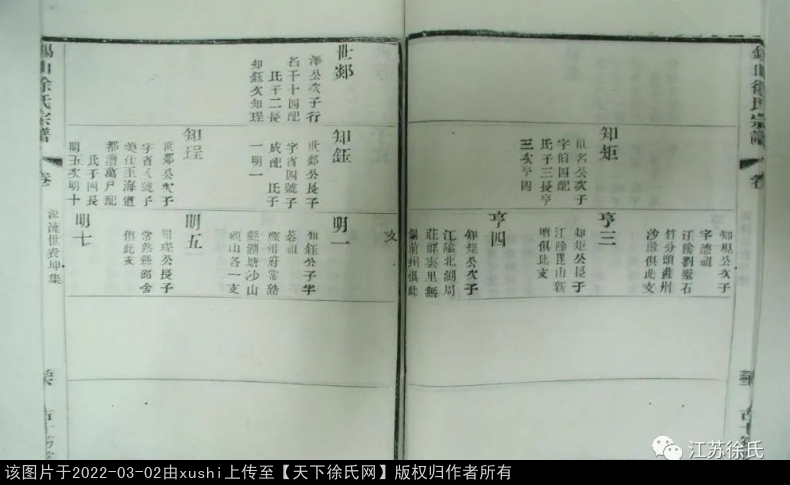 錫山徐氏宗譜
卷
知矩
公次子
字伯四配
氏子三長亨
三次亨四
知規公次子
字德祖
江陰劉墅石
竹分頭蘇州
沙墩俱此支
亨三
知矩公長子
江陰毘山新
塘俱此支
亨四
知矩公次子
江陰北涸周
莊祥雲里無
錫前州俱此
世
澤公次子行
名千十四配
氏子二長
知鈺次知珵
知鈺
世公長子
字省四號子
成配 氏子
一明一
知珵
世公次子
字省八號子
美仕至海道
都漕萬戶配
氏子四長
明五次明十
支
明一
知鈺公子字
祖
蘇州府常熟
縣湖塘沙山
顧山各一支
明五
知珵公長子
常熟縣邱舍
俱此支
明七
錫山徐氏宗譜
卷
源流世表坤集
江苏徐氏
该图片于2022-03-02由xushi上传至【天下徐氏网】版权归作者所有